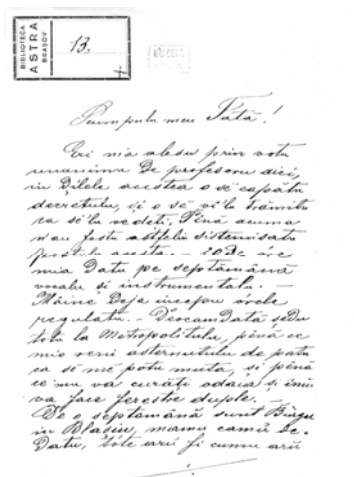 BIBLIOTECA
ASTRA
BRASOV
13.
Scumpulu meu Tată!
Eri m'a alesu prin votu
unanimu de profesoru aici,
in Dilele acestea o se capătu
decretulu, și o se vi'lu trămitu
ca se'lu vedeti. Pînă acuma
n'au fostu astfeliu sistemisatu
postulu acesta. — 20 de ore
mia Datu pe septămână
vocalu si instrumentalu. —
Mâine Deja incepu orele
regulatu. — Deocamdată sedu
totu la Metropolitulu, pênă ce
mio veni asternutulu de patu
ca se me potu muta, si pênă
ce nu va curăți odaia și imi
va face ferestre duple. —
De o septămână sunt
in Blasiu, mamu camu de-
Datu, tote aru fi cumu aru